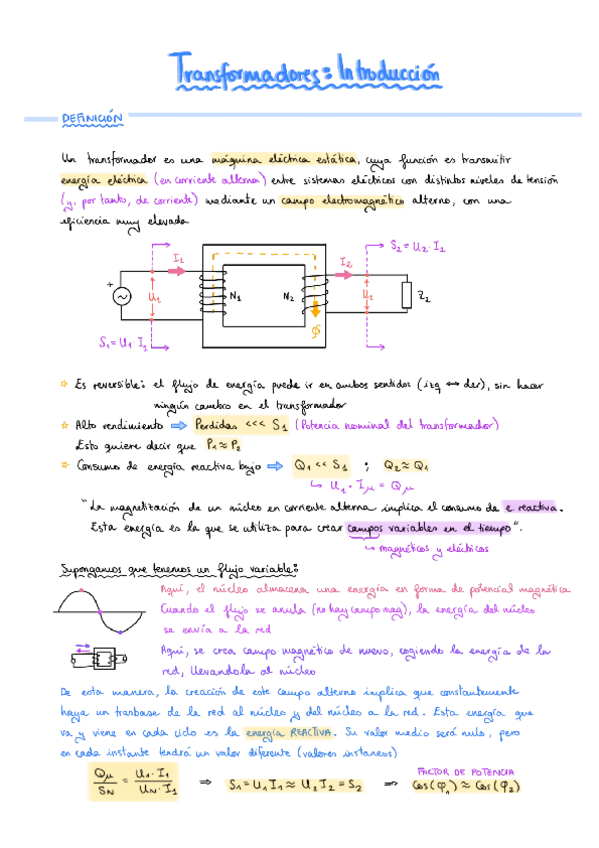 Transformadores: Introducción
DEFINICIÓN
Un transformador es una máquina eléctrica estática, cuya función es transmitir
energía eléctrica (en corriente alterna) entre sistemas eléctricos con distintos niveles de tensión
(y, por tanto, de corriente) mediante un campo electromagnético alterno, con una
eficiencia muy elevada
I1
I2
S2 = U2 · I2
+
U1
N1
N2
U2
Z2
ϕ
S1 = U1 · I1
☆ Es reversible: el flujo de energía puede ir en ambos sentidos (izq ↔ der), sin hacer
ningún cambio en el transformador
☆ Alto rendimiento ⇒ Perdidas <<< S1 (Potencia nominal del transformador)
Esto quiere decir que P1 ≈ P2
☆ Consumo de energía reactiva bajo ⇒ Q1 << S1 ; Q2 ≈ Q1
↳ U1 · Iμ = Qμ
"La magnetización de un núcleo en corriente alterna implica el consumo de e reactiva.
Esta energía es la que se utiliza para crear campos variables en el tiempo".
↳ magnéticos y eléctricos
Supongamos que tenemos un flujo variable:
Aquí, el núcleo almacena una energía en forma de potencial magnética
Cuando el flujo se anula (no hay campo mag), la energía del núcleo
se envía a la red
Aquí, se crea campo magnético de nuevo, cogiendo la energía de la
red, llevandola al núcleo
De esta manera, la creación de este campo alterno implica que constantemente
haya un trasbase de la red al núcleo y del núcleo a la red. Esta energía que
va y viene en cada ciclo es la energía REACTIVA. Su valor medio será nulo, pero
en cada instante tendrá un valor diferente (valores instaneos)
Qμ/SN = U1·I1/UN·I1 ⇒ S1 = U1 I1 ≈ U2 I2 = S2 ⇒ Cos(φ1) ≈ Cos(φ2)
FACTOR DE POTENCIA